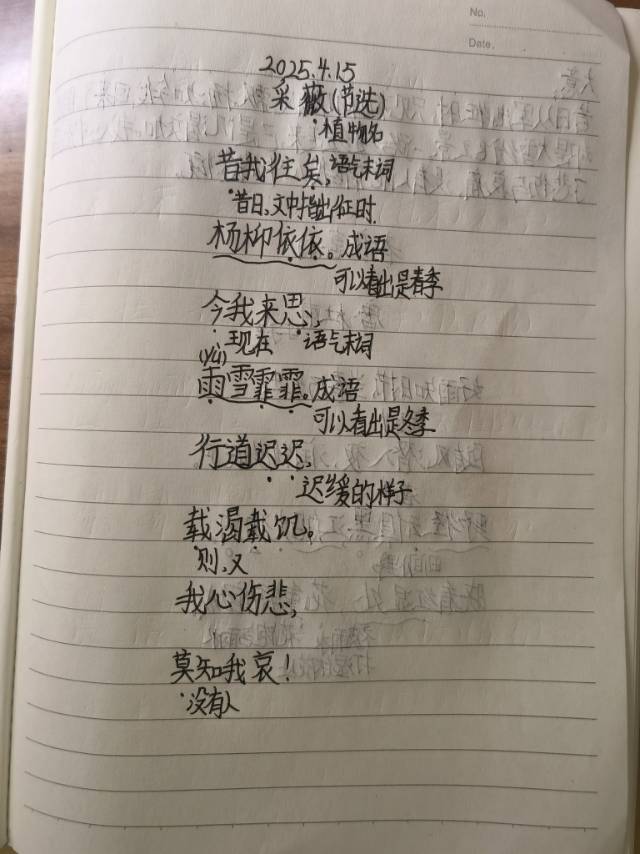 No.
Date.
2025.4.15
采薇(节选)
植物名
昔我往矣,语气末词
昔日,文中指出征时.
杨柳依依。成语
可以看出是春季
今我来思,
现在 语气末词
(yù)
雨雪霏霏。成语
可以看出是冬季
行道迟迟,
迟缓的样子
载渴载饥。
则,又
我心伤悲,
莫知我哀!
没有人